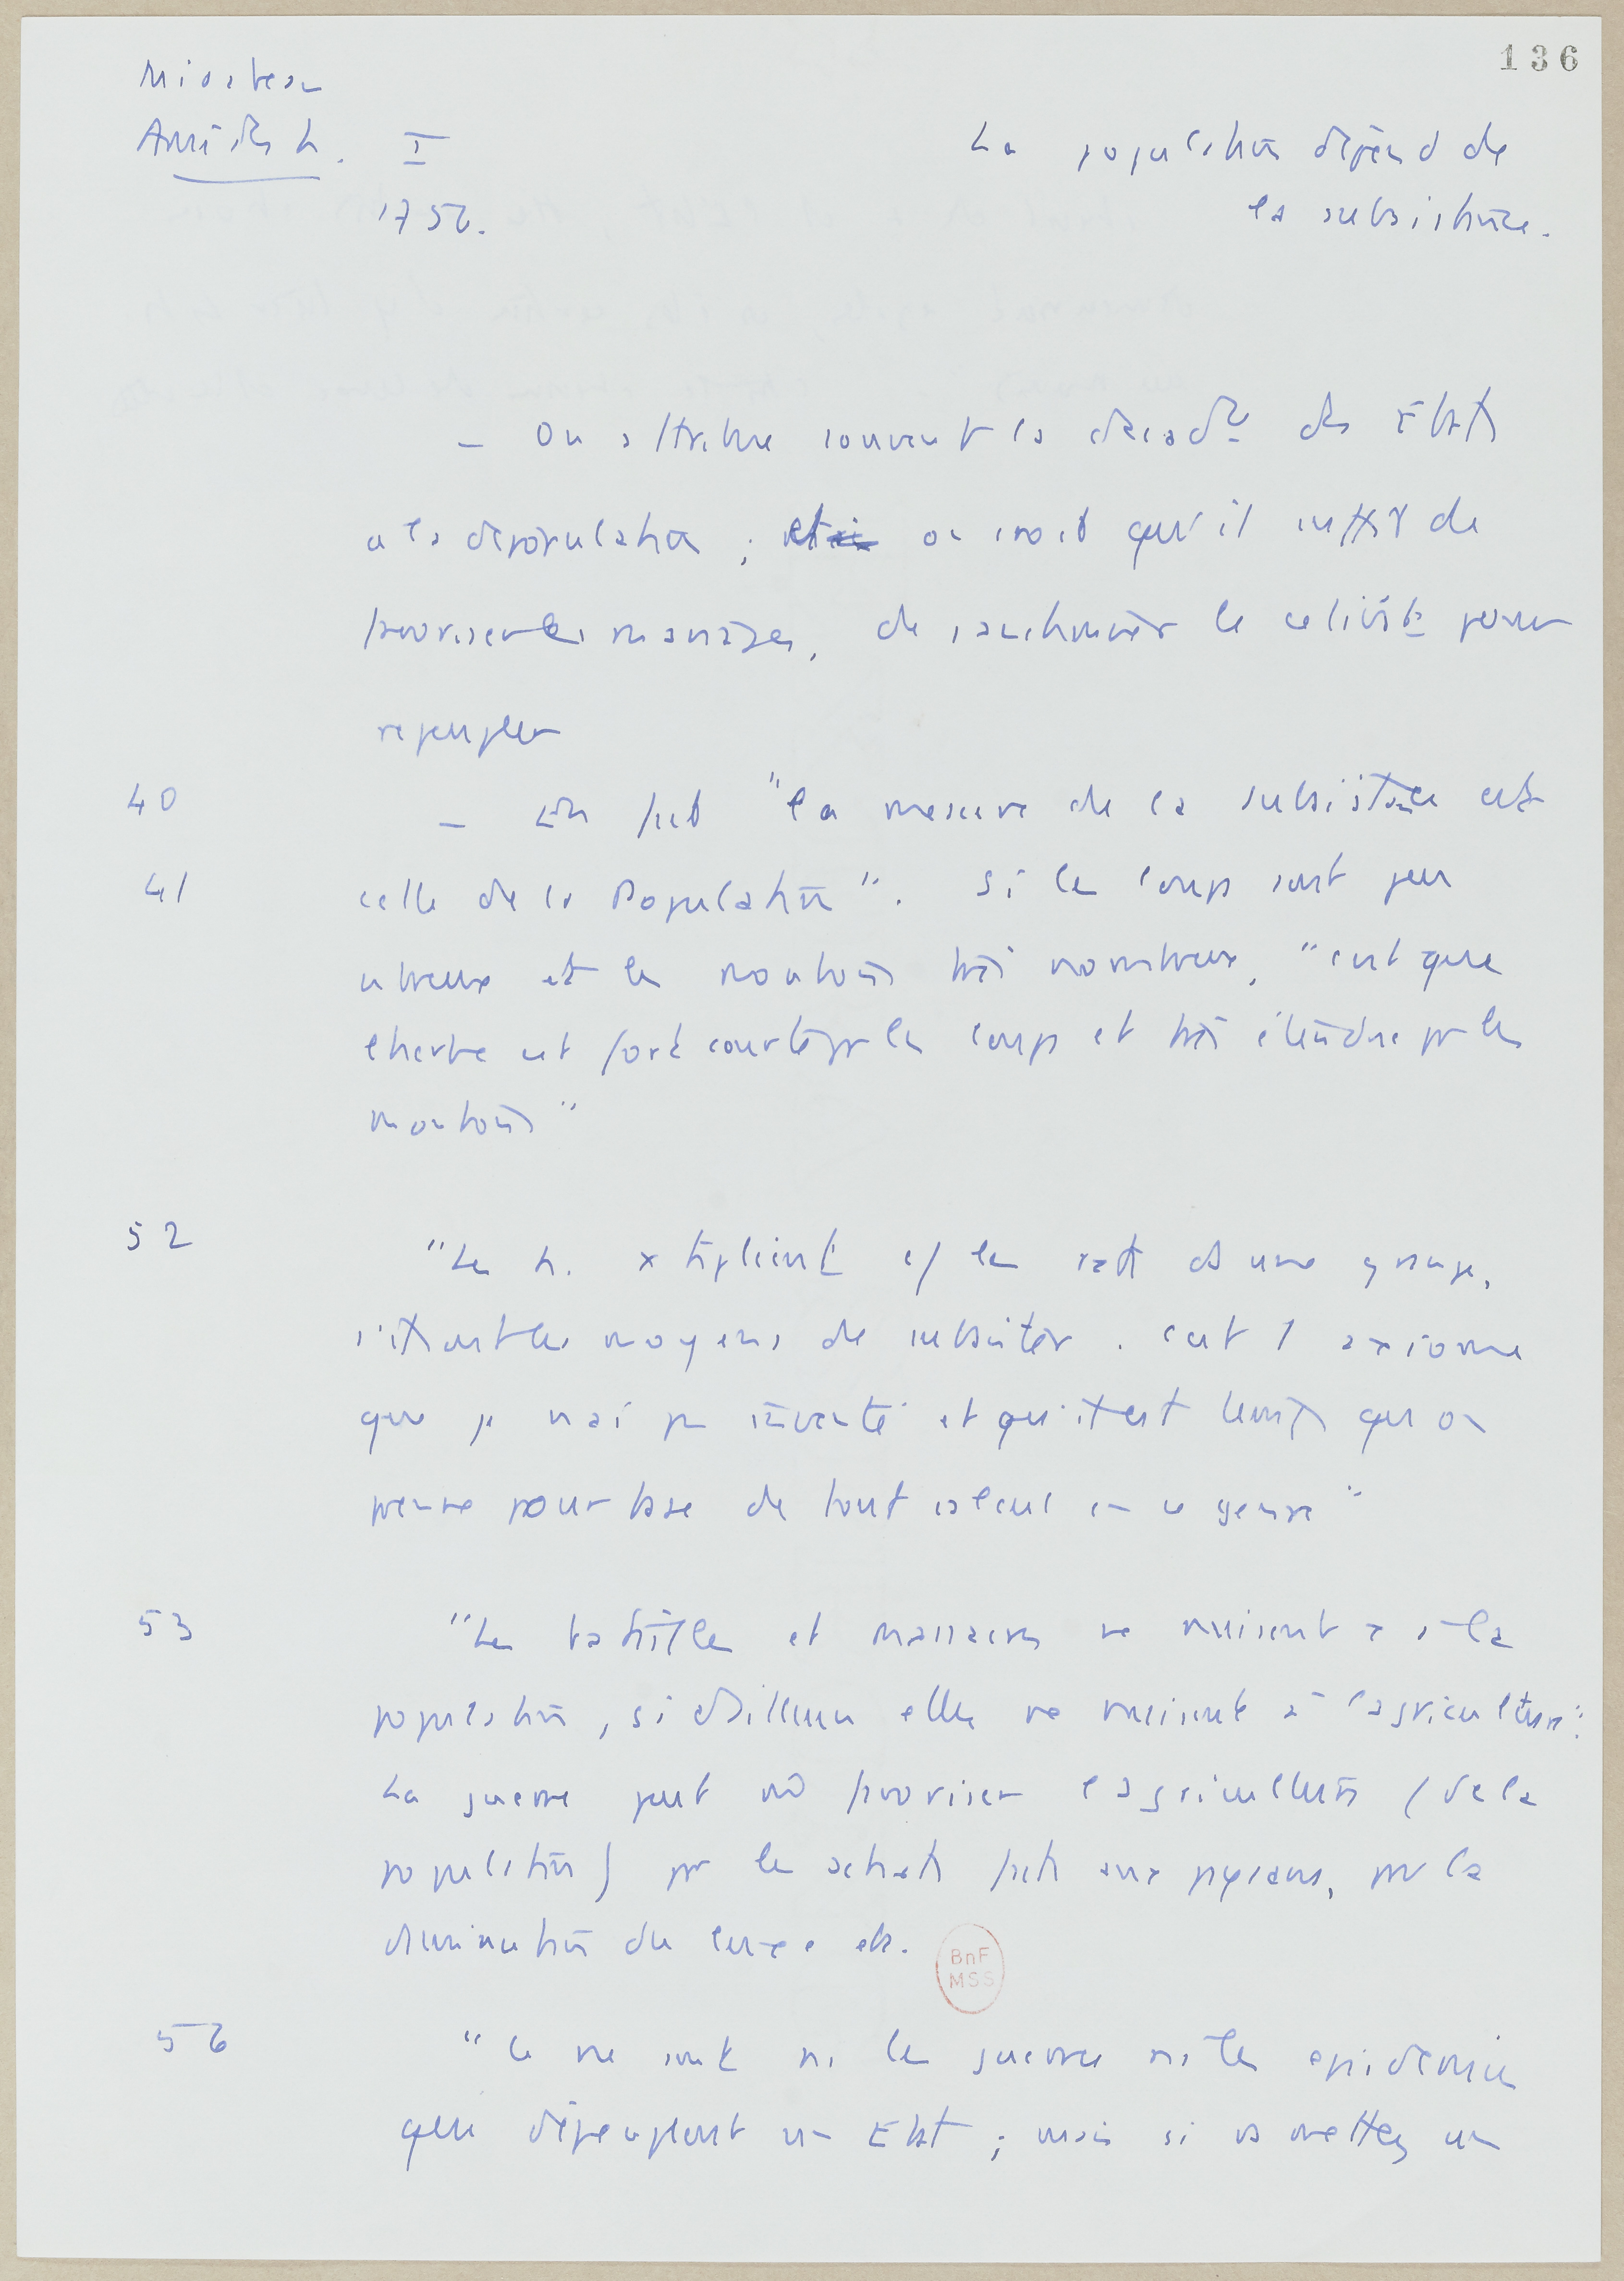 136
Mirabeau
Ami des h. I
1756.
La population dépend de
la subsistance.
– On attribue souvent la décadce des Etats
a la dépopulation ; on croit qu'il suffit de
favoriser les mariages, de sanctionner le célibat pour
repeupler
40
– En fait "la mesure de la subsistance est
41
celle de la Population". Si les loups sont peu
nbreux et les moutons très nombreux, "c'est que
l'herbe est fort courte pr les loups et très étendue pr les
moutons"
52
"Les h. x tiplient c/ les rats ds une grange,
s'ils ont les moyens de subsister. C'est 1 axiome
que je n'ai pas inventé et qu'il est temps qu'on
prenne pour base de tout calcul en ce genre"
53
"Les batailles et massacres ne nuisent à la
population, si d'ailleurs elles ne nuisent à l'agriculture".
La guerre peut favoriser l'agriculture (de la
population) pr les achats faits aux paysans, pr la
diminution du etc.
BnF
MSS
56
"Ce ne sont ni les guerres ni les epidemies
qui dépeuplent un Etat ; mais si vs mettez un